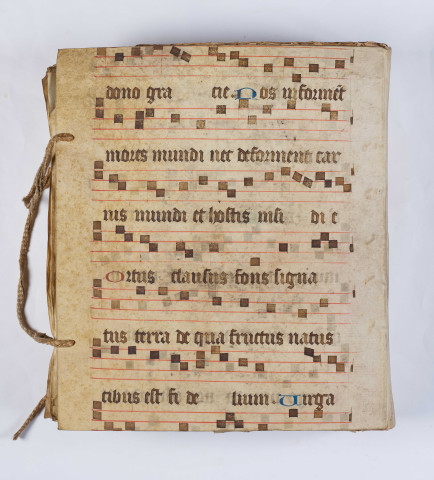 dono gra cie Nos informet
mores mundi nec deforment car
nis mundi et hostis insi di e
Ortus clausus fons signa
tus terra de qua fructus natus
cibus est fi de lium Uirga